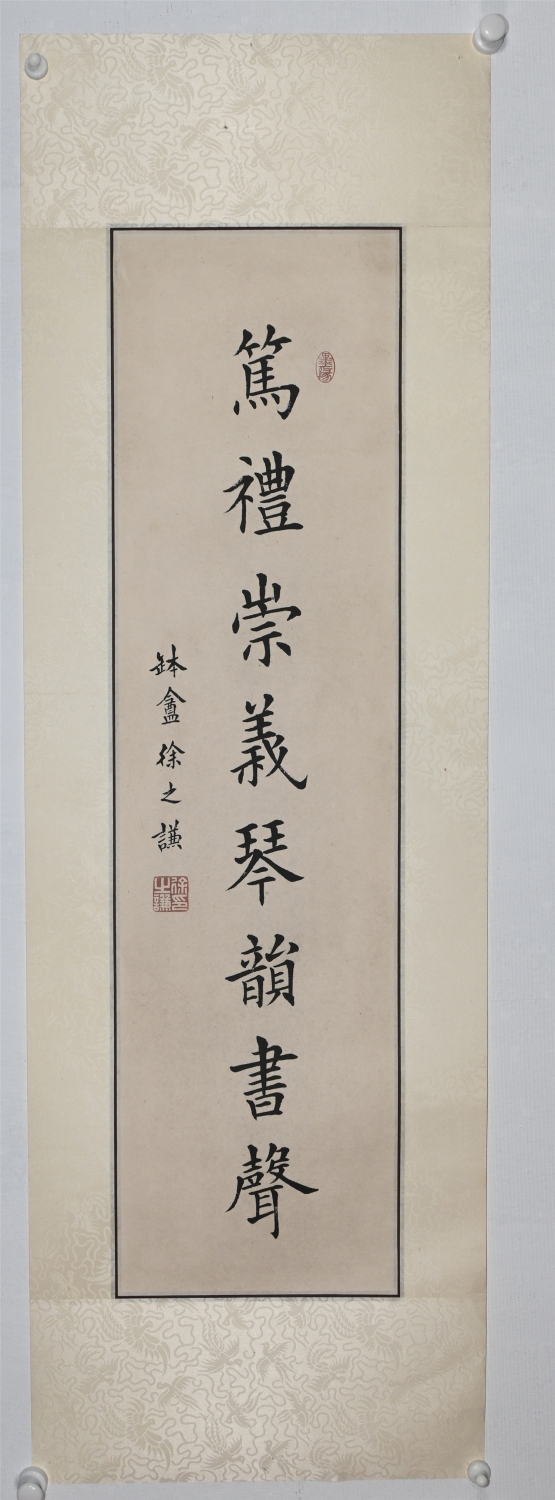 篤禮崇義琴韻書聲
鉢盦徐之謙
墨緣
徐之謙印